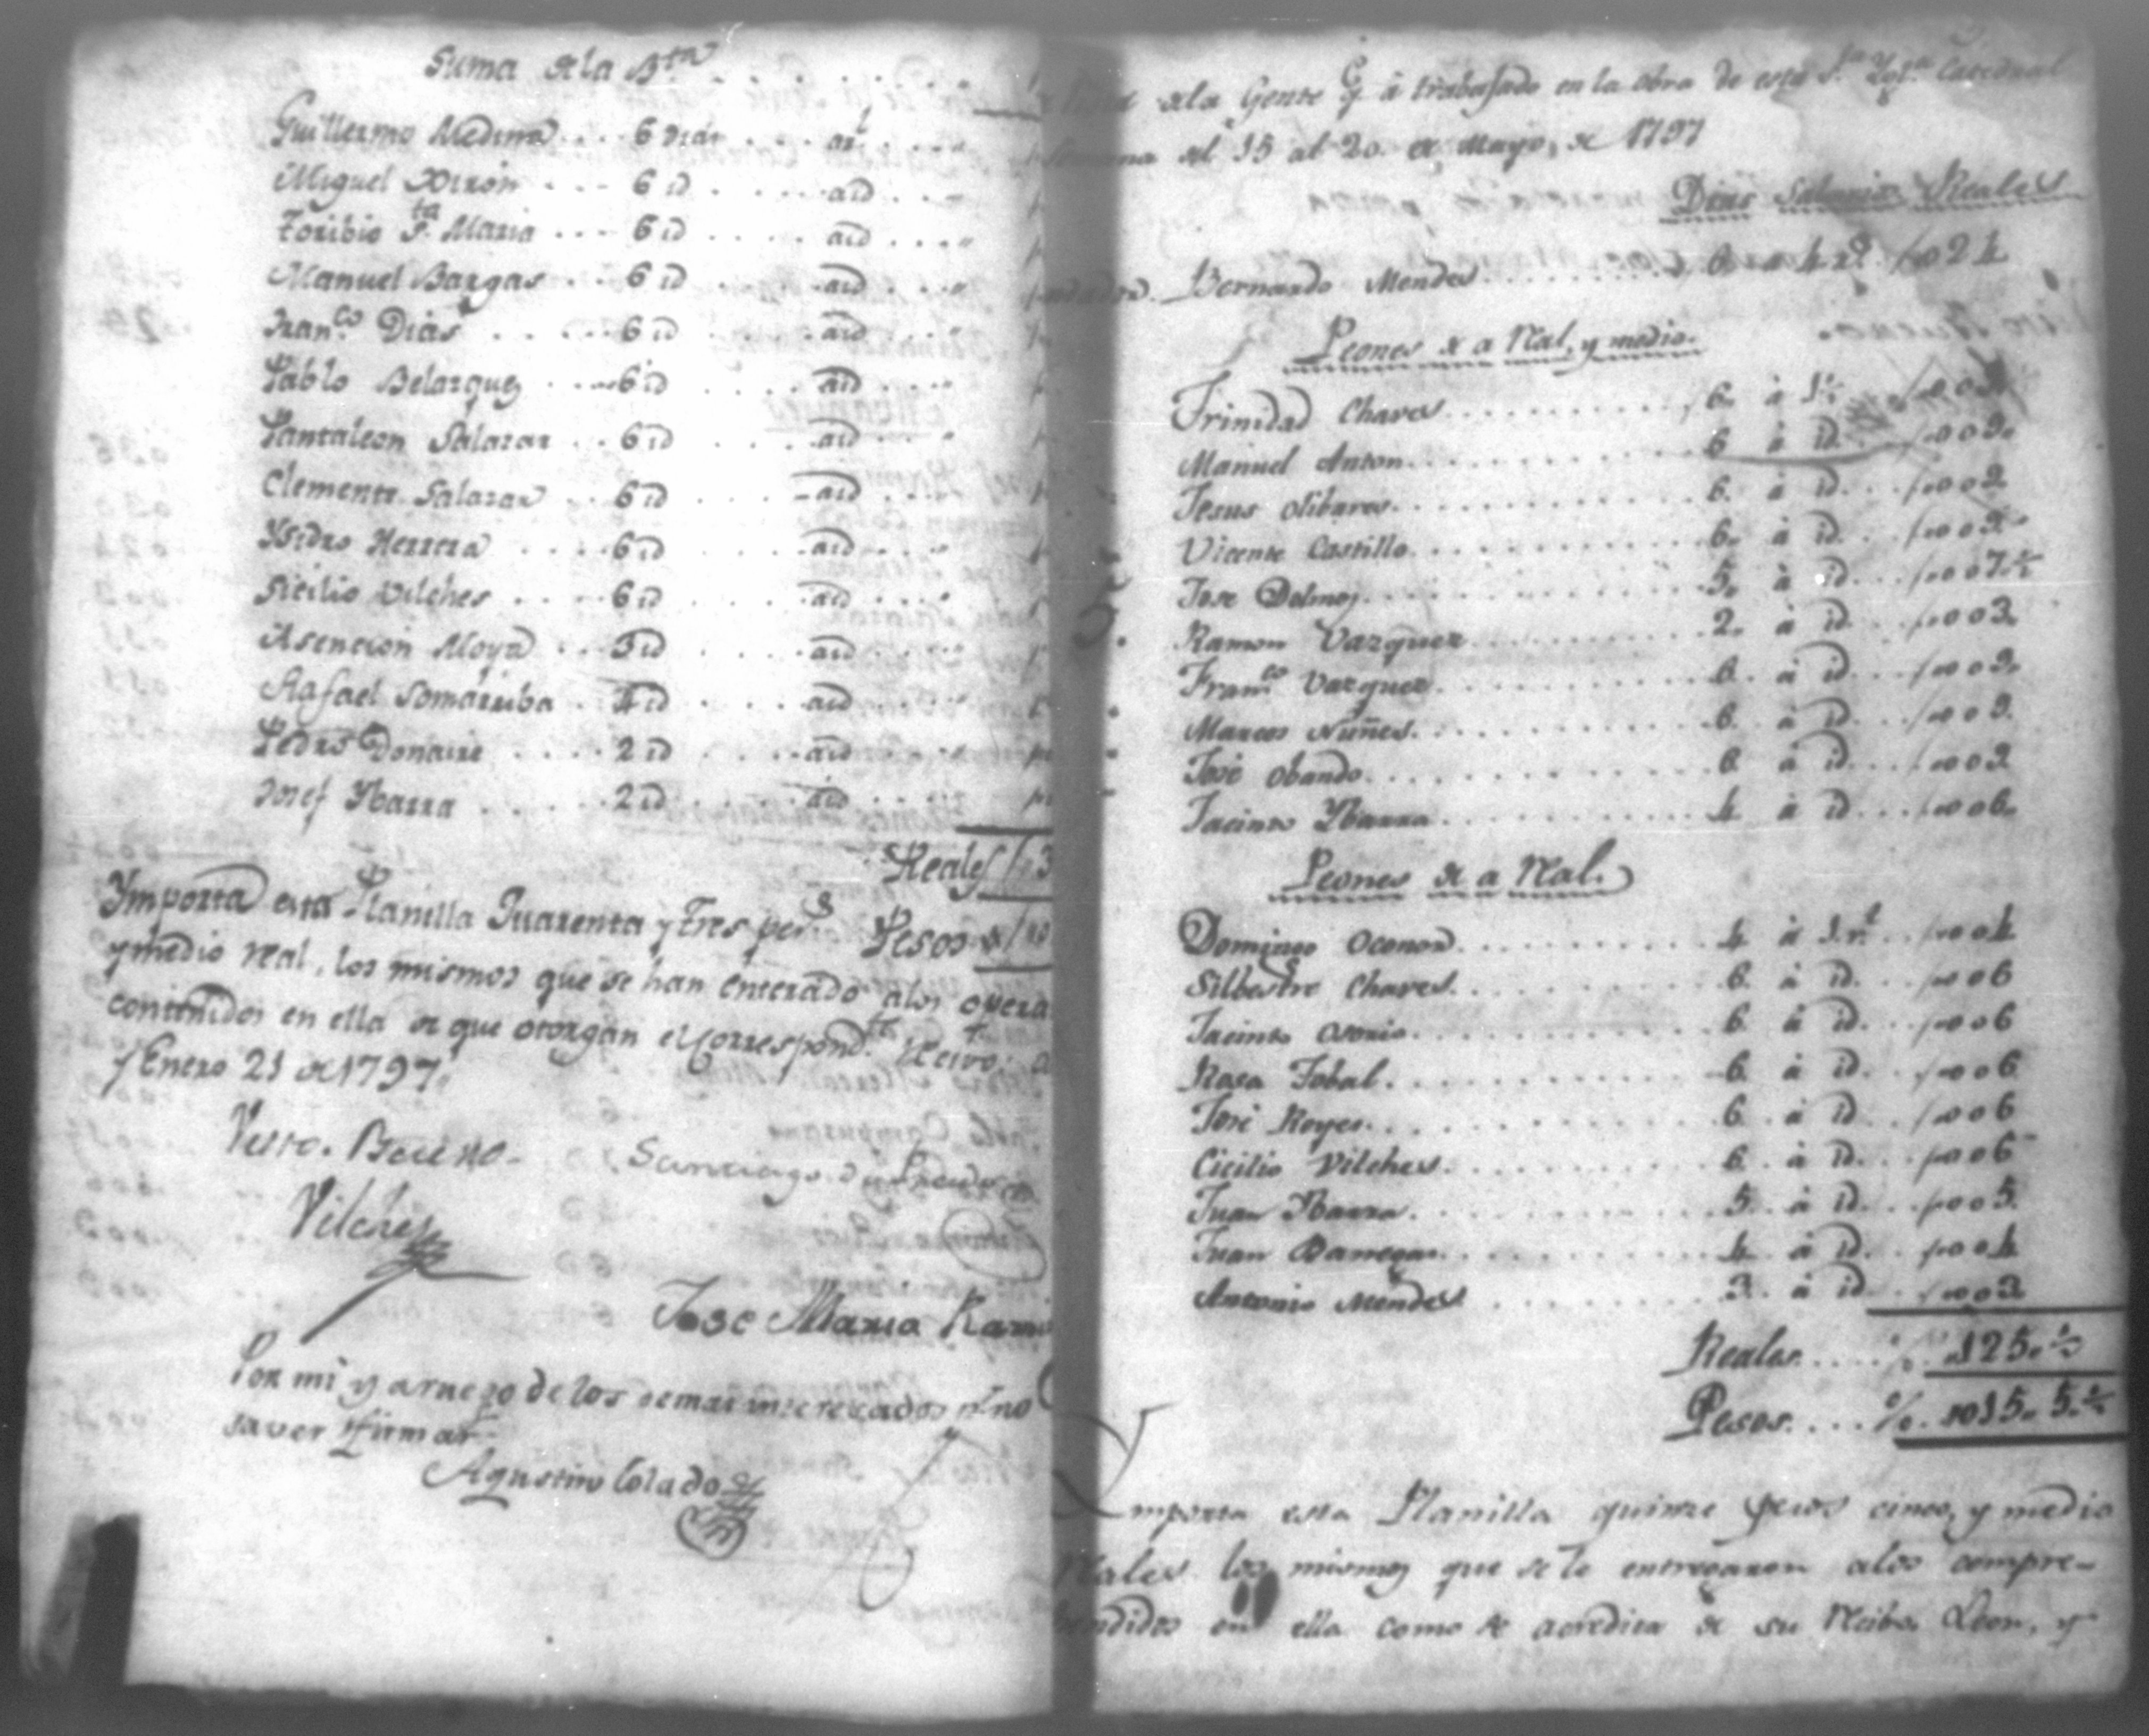 Suma de la B.ta
Guillermo Medina 6 dias a 1
Miguel Xirón 6 id a id
Toribio S.ta Maria 6 id a id
Manuel Bargas 6 id a id
Fran.co Dias 6 id a id
Pablo Belazquez 6 id a id
Pantaleon Salazar 6 id a id
Clemente Salazar 6 id a id
Ysidro Herrera 6 id a id
Sicilio Vilches 6 id a id
Asencion Moya 5 id a id
Rafael Somarriba 4 id a id
Pedro Donaire 2 id a id
Josef Ybarra 2 id a id
Reales
Ymporta esta Planilla Quarenta y tres pes.s Pesos
y medio real, los mismos que se han enterado alos opera
contenidos en ella de que otorgan el Correspond.te Recivo:
y Enero 21 de 1797.
Visto. Bueno.
Santiago
Vilches
Jose Maria Rami
Por mi y a ruego de los demas interezados p.r no
saver firmar
Agustin Colado
dela Gente q̃ à trabajado en la obra de esta S.ta Ygl.a Catedral
del 15 al 20 de Mayo, de 1797
Dias Salario Reales
Bernardo Mendes 6 a 4 r.s 024
Peones de a Ral, y medio.
Trinidad Chaves 6. à 1½ 009
Manuel Anton 6 à id. 009.
Jesus Olibares 6. à id. 009
Vicente Castillo 6. à id. 009
Jose Delmos 5. à id. 007.½
Ramon Vazquez 2. à id. 003.
Fran.co Vazquez 6. à id. 009.
Marcos Nuñes 6. à id. 009.
José Obando 6. à id. 009
Jacinto Ybarra 4. à id. 006.
Peones de a Ral.
Domingo Oconor 4. à 1 r.l 004
Silbestre Chaves 6. à id. 006
Jacinto Osorio 6. à id. 006
Rosa Tobal 6. à id. 006
José Reyes 6. à id. 006
Cicilio Vilches 6. à id. 006
Juan Ybarra 5. à id. 005.
Juan Banegas 4. à id. 004
Antonio Mendes 3. à id. 003
Reales 125.½
Pesos 015. 5.½
Importa esta Planilla quinze pesos cinco, y medio
Rales los mismos que se le entregaron alos compre-
hendidos en ella como se acredita de su Recibo. Leon, y